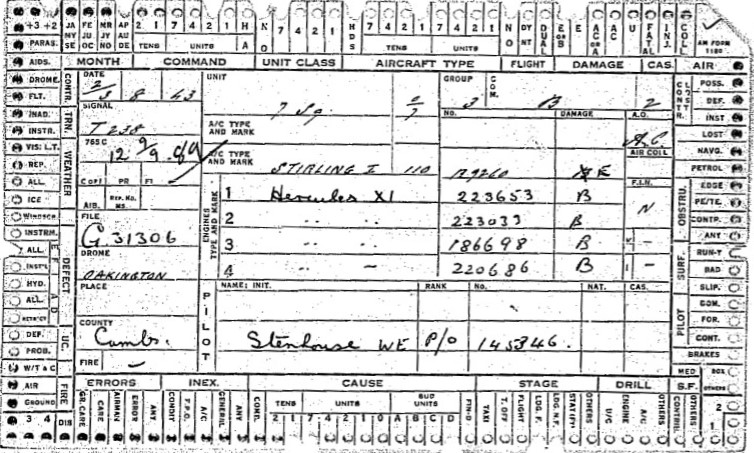 +3 +2 JA NY SE FE JU OC MR JY NO AP AU DE 2 1 7 4 2 1 H A N O 7 4 2 1 HDS 7 4 2 1 7 4 2 1 NO DY NT DUAL E OR B E AC OR A AC U FATAL INJ. COLL
PARAS. TENS UNITS TENS UNITS AM FORM 1180
AIDS. MONTH COMMAND UNIT CLASS AIRCRAFT TYPE FLIGHT DAMAGE CAS. AIR
DROME. CONTR. DATE UNIT GROUP COM. CONTR. POSS.
FLT. 2/3 8 43 7 Sq. 3 B 2 DEF.
INAD. TRN. SIGNAL A/C TYPE AND MARK NO. DAMAGE A.O. INST
INSTR. T 238 A.C. LOST
VIS: L.T. WEATHER 765C A/C TYPE AND MARK AIR COLL NAVG.
REP. 12 9/9 STIRLING I 110 R9260 E PETROL
ALL COPI PR FI ENGINES TYPE AND MARK 1 Hercules XI 223653 B F.I.N. OBSTRU. EDGE
ICE AIB. REP. NO. MS. N PE/TE.
WINDSCN. FILE 2 " " 223033 B CONTP.
INSTRM. G.31306 3 " " 186698 B - ANY
ALL DEFECT DROME SURF. RUN-T
INST'L OAKINGTON 4 " - 220686 B - BAD
HYD. PLACE PILOT NAME: INIT. RANK NO. NAT. CAS. PILOT SLIP.
ALL COM.
COUNTY FOR.
DEF. UC. Cambs. Stenhouse WE P/O 145346. CONT.
PROB. BRAKES
W/T & C FIRE - MED BOX
AIR FIRE ERRORS INEX. CAUSE STAGE DRILL S.F. OTHERS
GROUND GR. CARE CARE AIRMAN ERROR ANY CONDIT F.P.O. A/C GENERAL ANY COMD. TENS UNITS SUB UNITS FIN-D TAXI T. OFF FLIGHT LDG. F. LDG. N.F. STAT(FY) OTHERS U/C ENGINE A/C OTHERS CONTROL OTHERS 2
3 4 DIS 2 1 7 4 2 1 0 A B C D 1